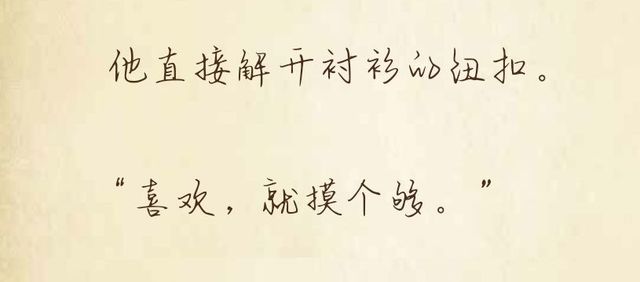 他直接解开衬衫的纽扣。
“喜欢，就摸个够。”